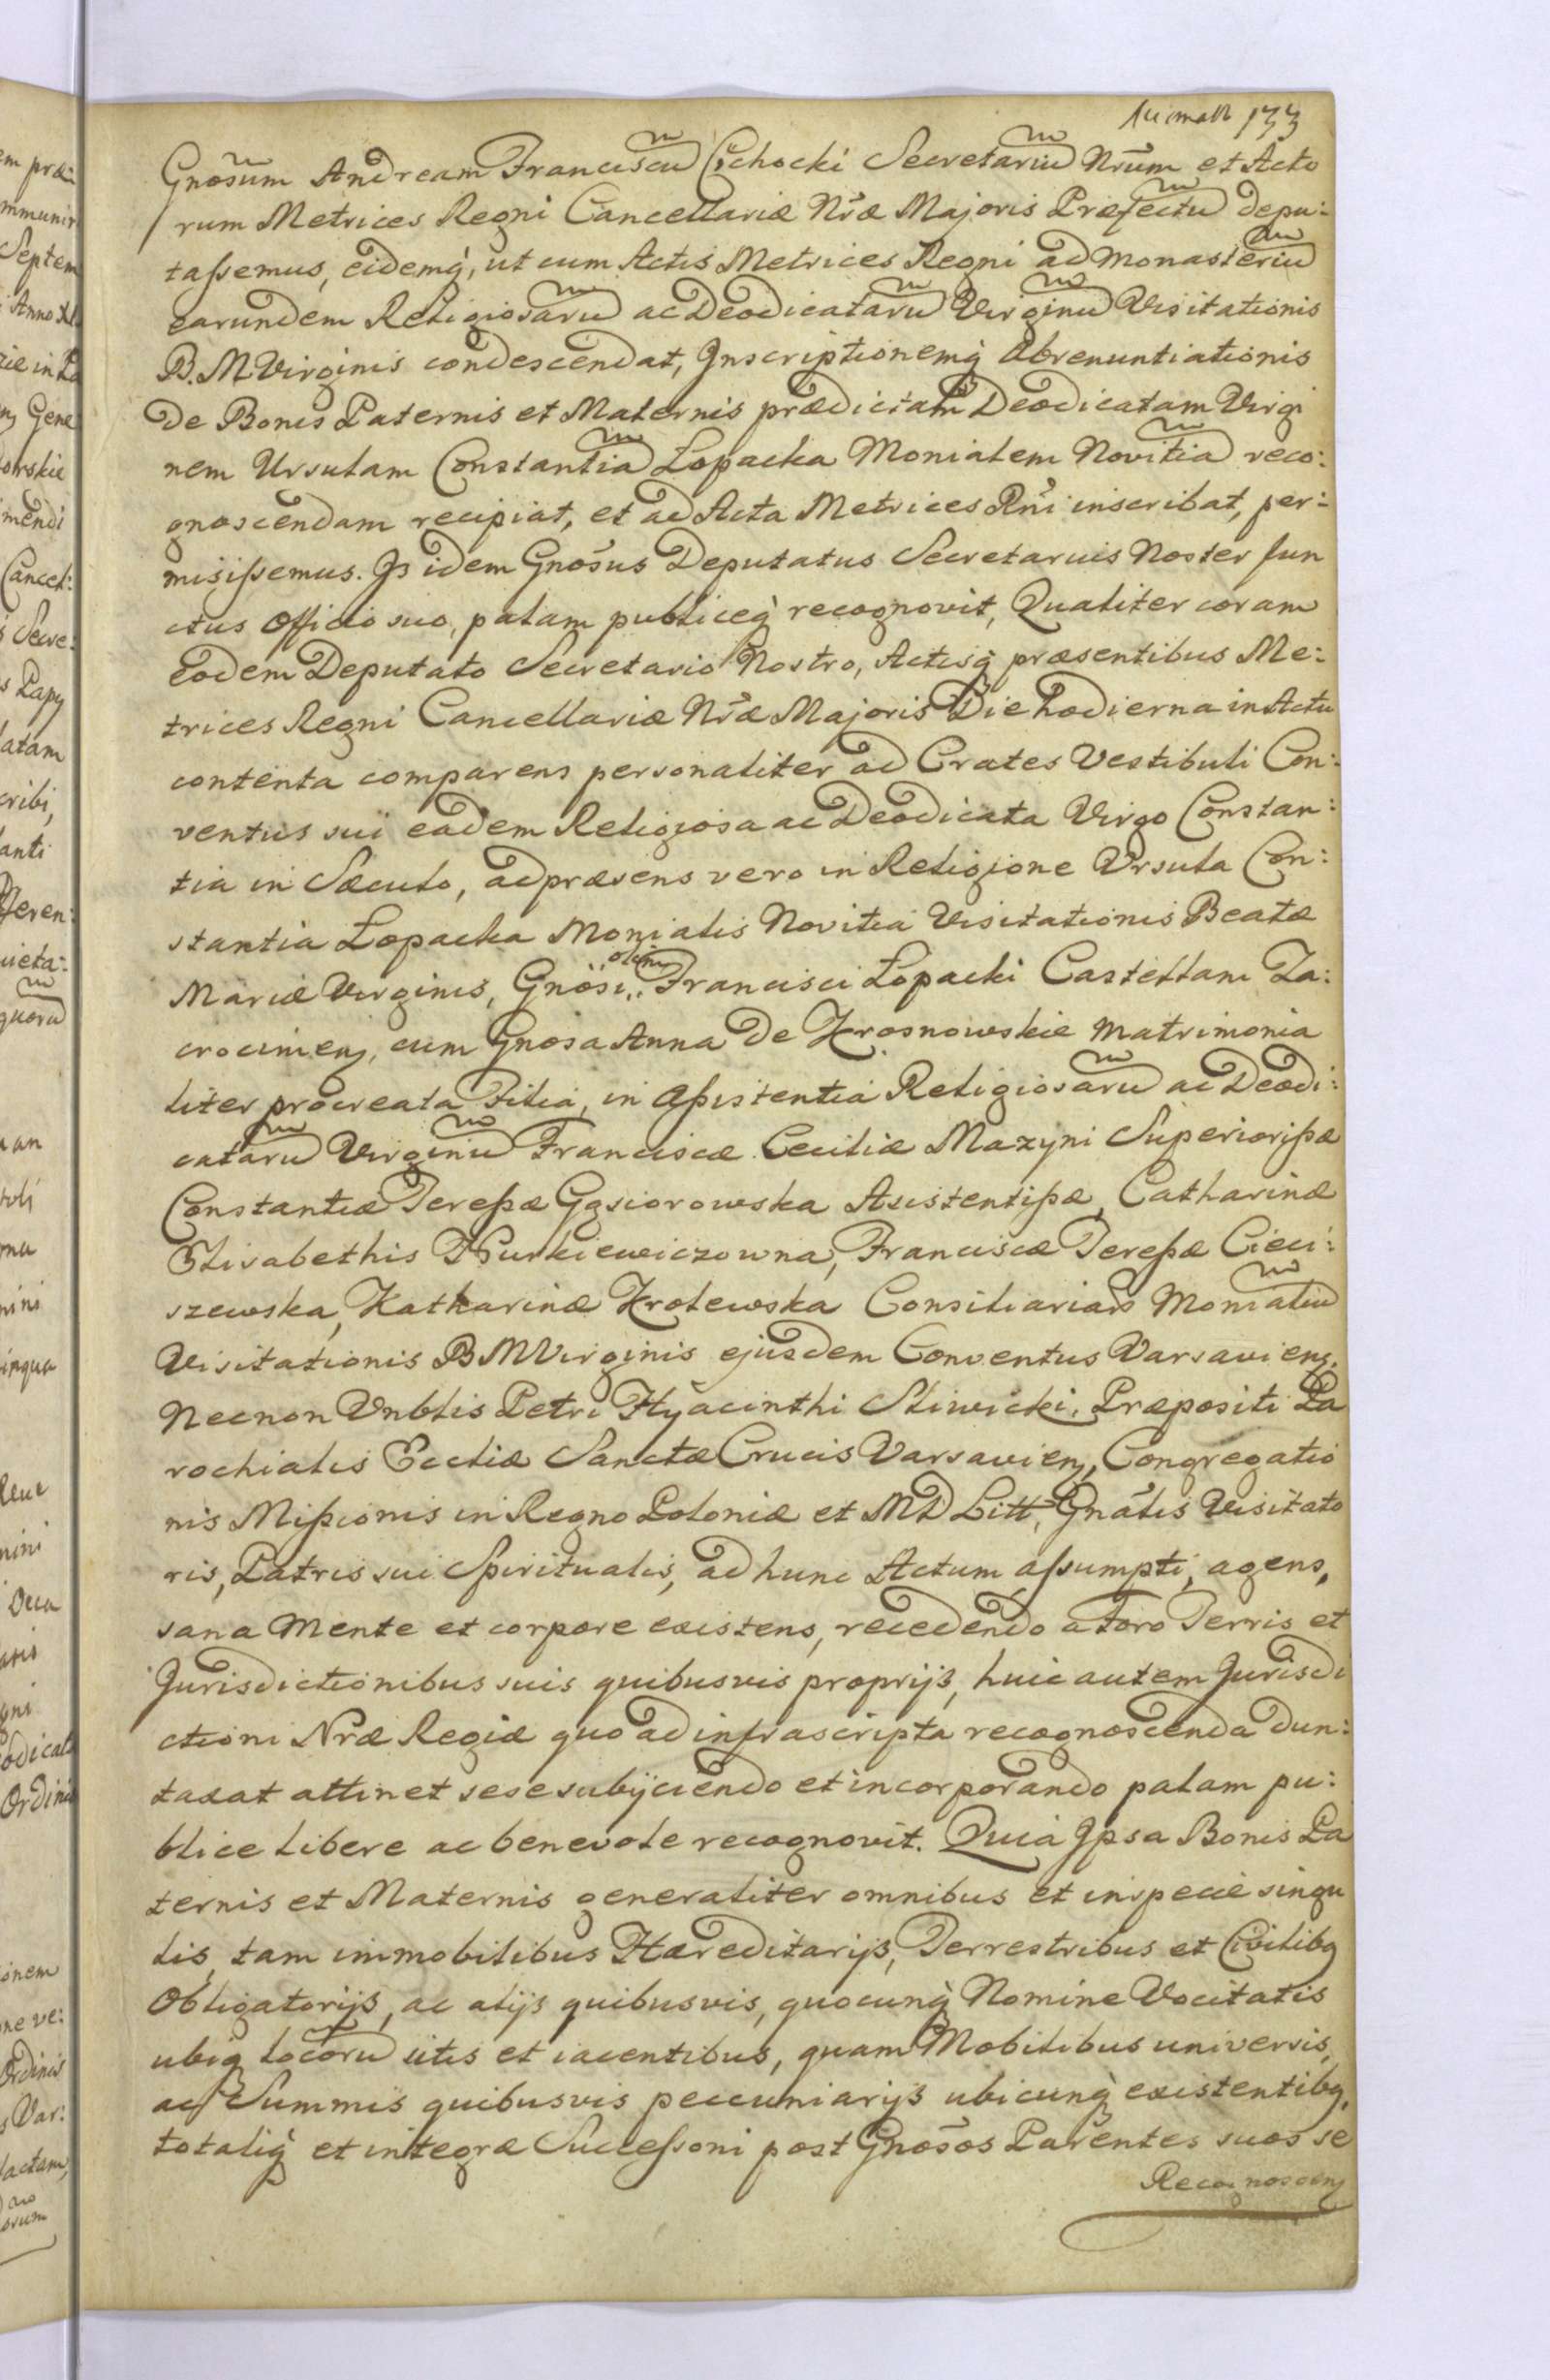 133
Gnosum Andream Franciscu Cichocki Secretariu Nrum et Acto
rum Metrices Regni Cancellariæ Nræ Majoris Præfectu depu:
tassemus, eidemq, ut cum Actis Metrices Regni ad Monasteriu
earundem Religiosaru ac Deodicataru Virginu Visitationis
B. M. Virginis condescendat, Inscriptionemq Abrenuntiationis
de Bonis Paternis et Maternis prædictam Deodicatam Virgi
nem Ursulam Constantia Łopacka Monialem Novitia reco:
gnoscendam recipiat, et ad Acta Metrices Rni inscribat, per:
misissemus. Is idem Gnosus Deputatus Secretarius Noster fun
ctus officio suo, palam publiceq recognovit, Qualiter coram
eodem Deputato Secretario Nostro, Actisq præsentibus Me:
trices Regni Cancellariæ Nræ Majoris Die hodierna in Actu
contenta comparens personaliter ad Crates Vestibuli Con:
ventus sui eadem Religiosa ac Deodicata Virgo Constan:
tia in Sæculo, ad præsens vero in Religione Ursula Con:
stantia Łopacka Monialis Novitia Visitationis Beatæ
Mariæ Virginis, Gnosi olim Francisci Łopacki Castellani Za:
crocimen, cum Gnosa Anna de Krosnowskie matrimonia
liter procreata Filia, in Assistentia Religiosaru ac Deodi:
cataru Virginu Franciscæ Ceciliæ Mazyni Superiorissæ
Constantiæ Teressæ Gąsiorowska Asistentissæ, Catharinæ
Elisabethis Dzurkiewiczowna, Franciscæ Teressæ Cieci:
szewska, Katharinæ Krolewska Consiliariars Monialiu
Visitationis B M Virginis ejusdem Conventus Varsavien.
Necnon Vnblis Petri Hyacinthi Sliwicki, Præpositi Pa
rochialis Eccliæ Sanctæ Crucis Varsavien, Congregatio
nis Missionis in Regno Poloniæ et M D Litt, Gnalis Visitato
ris, Patris sui Spiritualis, ad hunc Actum assumpti, agens,
sana Mente et corpore existens, recedendo a Foro Terris et
Jurisdictionibus suis quibusvis proprijs, huic autem Jurisdi
ctioni Nræ Regiæ quo ad infrascripta recognoscenda dun:
taxat attinet sese subijciendo et incorporando palam pu:
blice libere ac benevole recognovit. Quia Ipsa Bonis Pa
ternis et Maternis generaliter omnibus et in specie singu
lis, tam immobilibus Hæreditarijs, Terrestribus et Civilibq
Obligatorijs, ac alijs quibusvis, quocunq Nomine Vocitatis
ubiq locoru sitis et iacentibus, quam Mobilibus universis,
ac Summis quibusvis peccuniarijs ubicunq existentibq,
totaliq et integræ Successoni post Gnosos Parentes suos se
Recognoscen